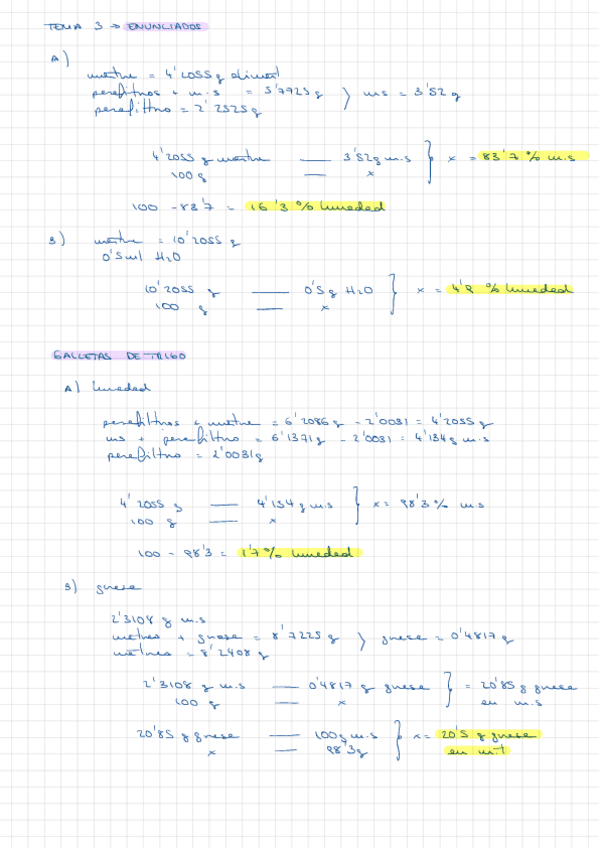 TEMA 3 → ENUNCIADOS
A)
muestra = 4'2055 g aliment
pesafiltros + m.s = 5'7725 g } ms = 3'52 g
pesafiltro = 2'2525 g
4'2055 g muestra — 3'52 g m.s } x = 83'7 % m.s
100 g — x
100 - 83'7 = 16'3 % humedad
B) muestra = 10'2055 g
0'5 ml H2O
10'2055 g — 0'5 g H2O } x = 4'9 % humedad
100 g — x
GALLETAS DE TRIGO
A) humedad
pesafiltros + muestra = 6'2086 g - 2'0031 = 4'2055 g
ms + pesafiltro = 6'1371 g - 2'0031 = 4'134 g m.s
pesafiltro = 2'0031 g
4'2055 g — 4'134 g m.s } x = 98'3 % m.s
100 g — x
100 - 98'3 = 1'7 % humedad
B) grasa
2'3108 g m.s
matraz + grasa = 8'7225 g } grasa = 0'4817 g
matraz = 8'2408 g
2'3108 g m.s — 0'4817 g grasa } = 20'85 g grasa
100 g — x en m.s
20'85 g grasa — 100 g m.s } x = 20'5 g grasa
x — 98'3 g en m.t